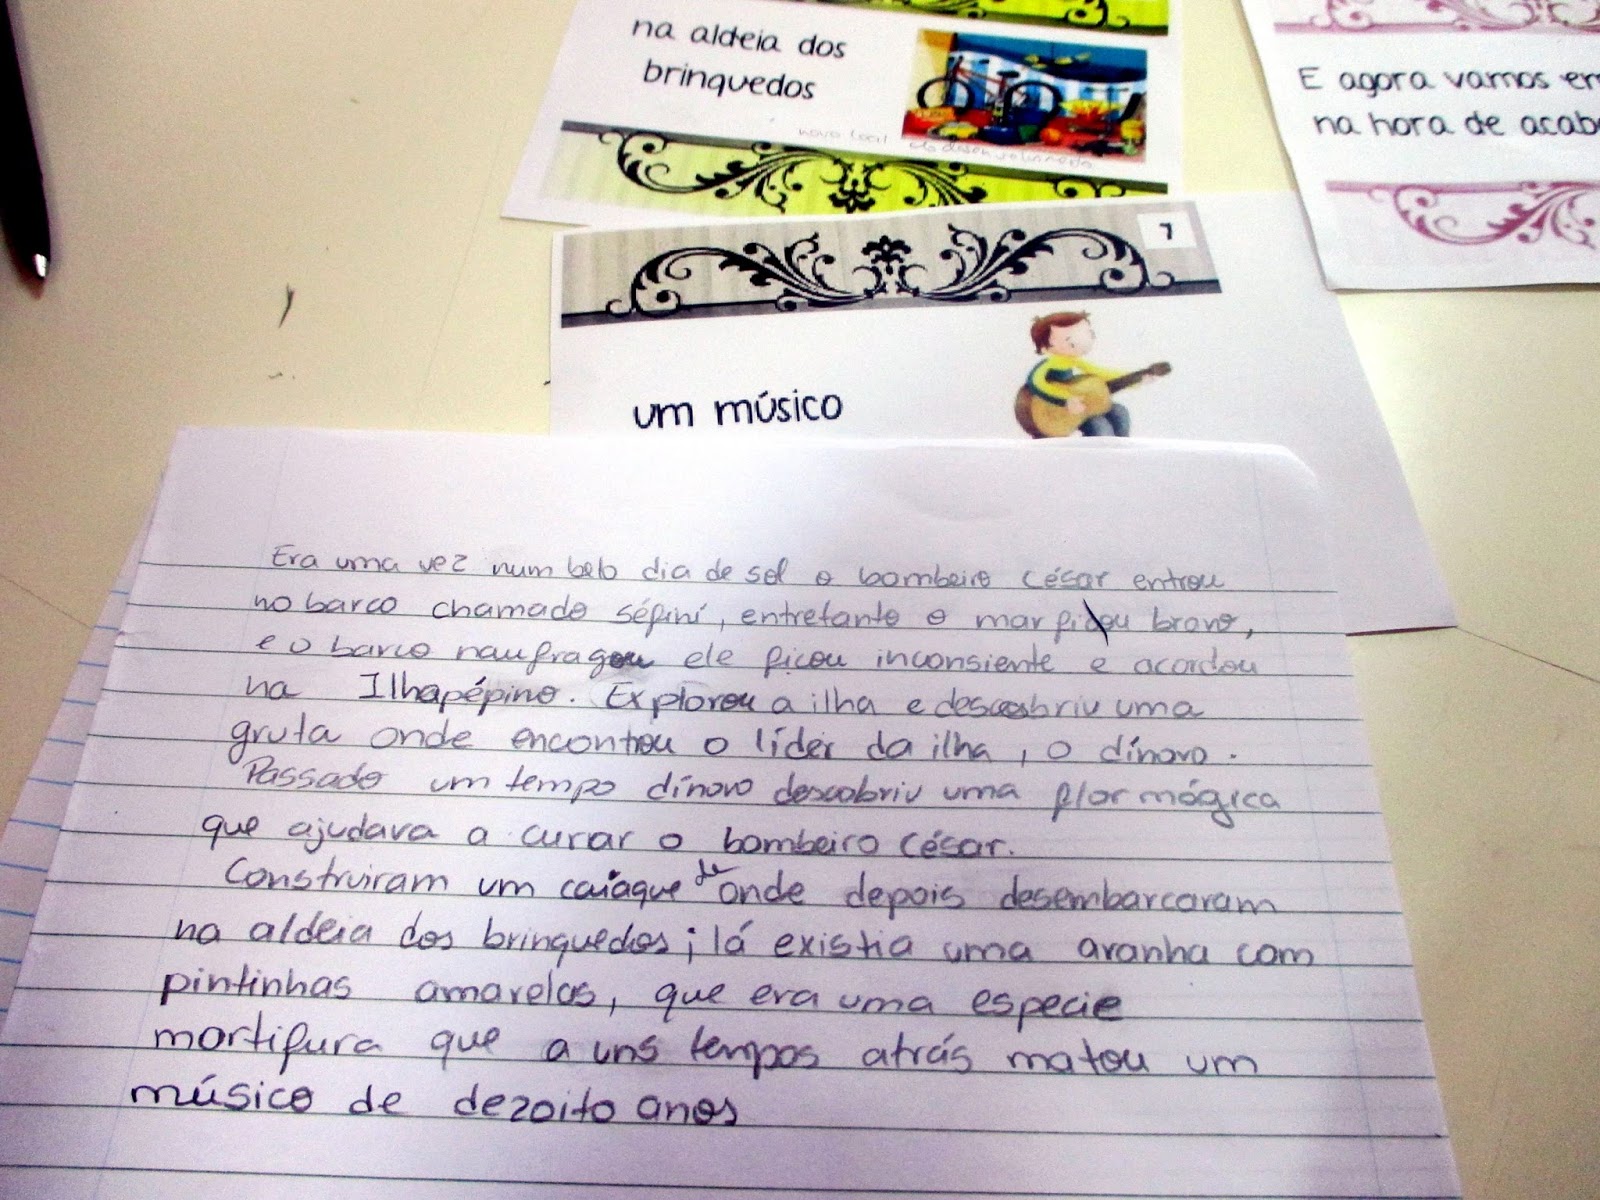 na aldeia dos
brinquedos
novo local
E agora vamos
na hora de
7
um músico
Era uma vez num belo dia de sol o bombeiro César entrou
no barco chamado sépini, entretanto o mar ficou bravo,
e o barco naufragou ele ficou inconsiente e acordou
na Ilhapépino. Explorou a ilha e descobriu uma
gruta onde encontrou o líder da ilha, o dínovo.
Passado um tempo dínovo descobriu uma flor mágica
que ajudava a curar o bombeiro César.
Construiram um caiaque de onde depois desembarcaram
na aldeia dos brinquedos; lá existia uma aranha com
pintinhas amarelas, que era uma especie
mortifura que a uns tempos atrás matou um
músico de dezoito anos